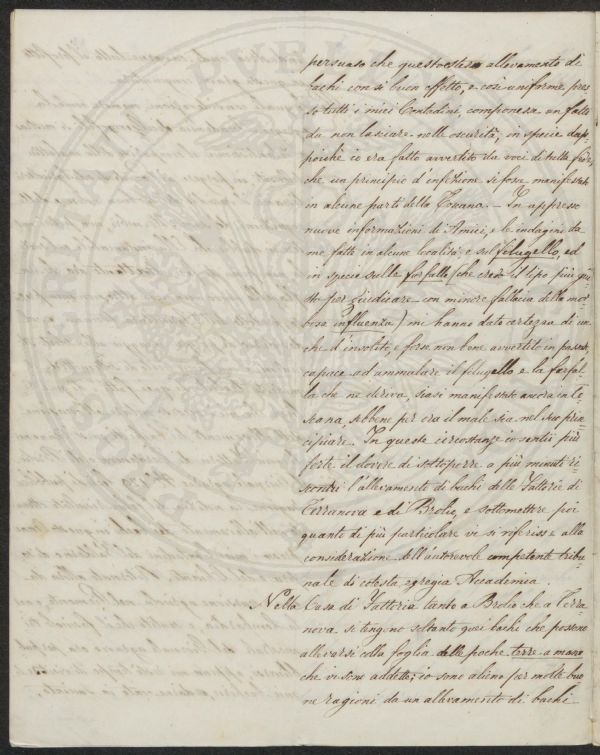 persuaso che quest'estesa allevamento di
bachi con sì buon effetto, e così uniforme pres
so tutti i miei Contadini, componesse un fatto
da non lasciare nelle oscurità, in specie dap=
poichè io era fatto avvertito da voci di tutta fede
che un principio d'infezione si fosse manifestato
in alcune parti della Toscana. – In appresso
nuove informazioni di Amici, e le indagini da
me fatte in alcune località, e sul filugello, ed
in specie sulle farfalle (che credo il tipo più giu
sto per giudicare con minore fallacia della mor
bosa influenza) mi hanno dato certezza di un
che d'insolito, e forse non bene avvertito in passato,
capace ad ammalare il filugello e la farfal=
la che ne deriva, siasi manifestato ancora in To=
scana, sebbene per ora il male sia nel suo prin
cipiare. In queste circostanze io sentii più
forte il dovere di sottoporre a più minuti ri=
scontri l'allevamento di bachi delle Fattorie di
Terranova e di Brolio, e sottomettere poi
quanto di più particolare vi si riferisse alla
considerazione dell'autorevole competente tribu=
nale di cotesta egregia Accademia.
Nella Casa di Fattoria tanto a Brolio che a Terra
nova si tengono soltanto quei bachi che possono
allevarsi colla foglia delle poche terre a mano
che vi sono addette; io sono alieno per molte buo
ne ragioni da un allevamento di bachi